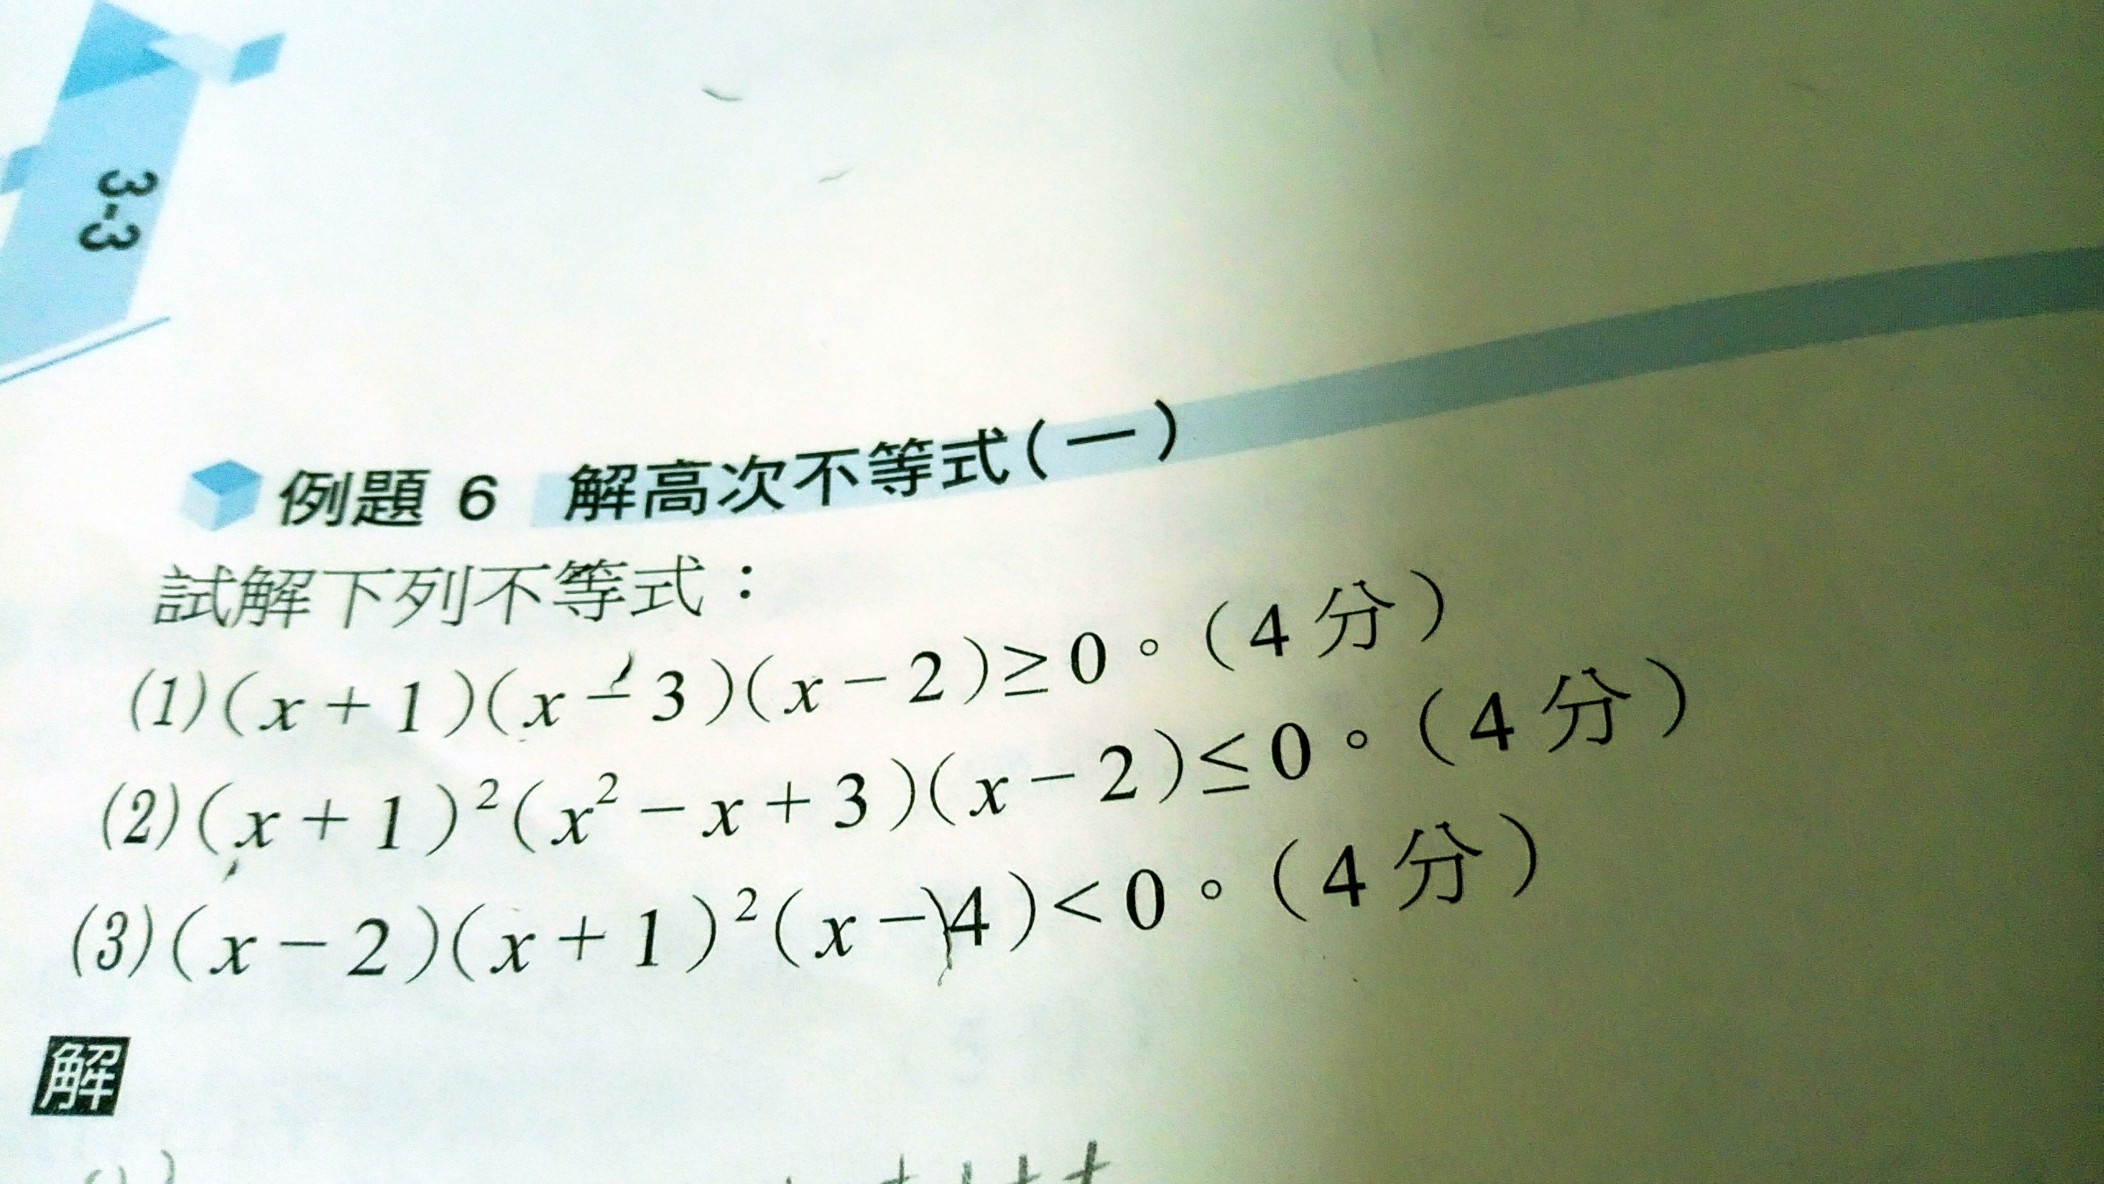 3-3
例題 6 解高次不等式(一)
試解下列不等式：
(1)(x+1)(x-3)(x-2)≥0。(4分)
(2)(x+1)²(x²-x+3)(x-2)≤0。(4分)
(3)(x-2)(x+1)²(x-4)<0。(4分)
解